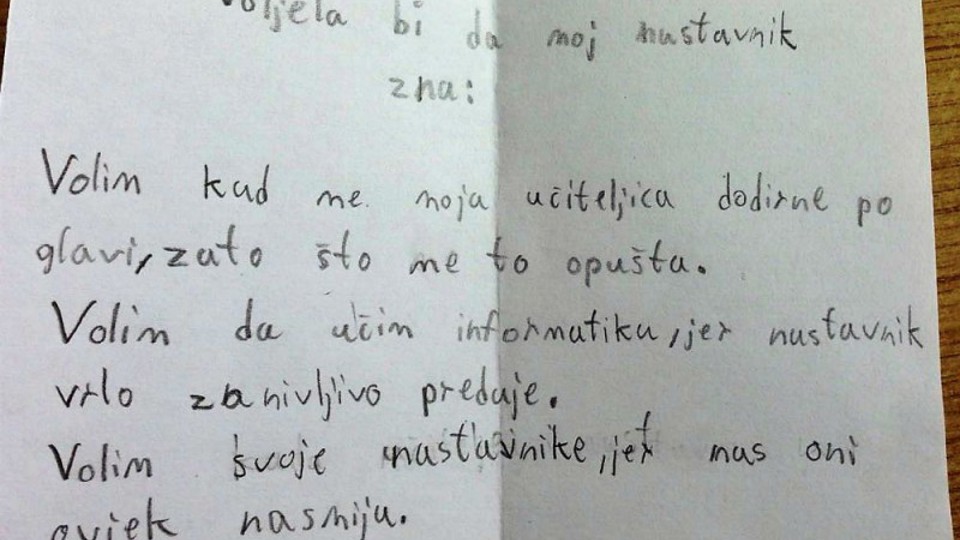 Voljela bi da moj nastavnik
zna:
Volim kad me moja učiteljica dodirne po
glavi, zato što me to opušta.
Volim da učim informatiku, jer nastavnik
vrlo zanivljivo preduje.
Volim svoje nastavnike, jer nas oni
uvjek nasmiju.